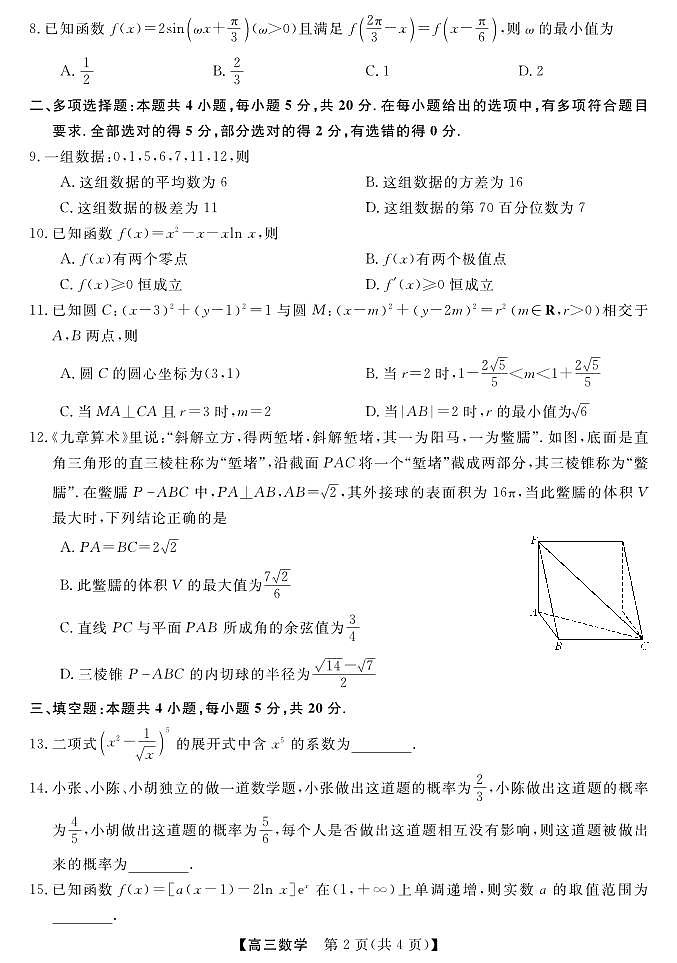 8. 已知函数 f(x)=2sin(ωx+π/3)(ω>0)且满足 f(2π/3-x)=f(x-π/6),则 ω 的最小值为
A. 1/2 B. 2/3 C. 1 D. 2
二、多项选择题:本题共 4 小题,每小题 5 分,共 20 分. 在每小题给出的选项中,有多项符合题目
要求. 全部选对的得 5 分,部分选对的得 2 分,有选错的得 0 分.
9. 一组数据:0,1,5,6,7,11,12,则
A. 这组数据的平均数为 6 B. 这组数据的方差为 16
C. 这组数据的极差为 11 D. 这组数据的第 70 百分位数为 7
10. 已知函数 f(x)=x²-x-xln x,则
A. f(x)有两个零点 B. f(x)有两个极值点
C. f(x)≥0 恒成立 D. f′(x)≥0 恒成立
11. 已知圆 C:(x-3)²+(y-1)²=1 与圆 M:(x-m)²+(y-2m)²=r²(m∈R,r>0)相交于
A,B 两点,则
A. 圆 C 的圆心坐标为(3,1) B. 当 r=2 时,1-2√5/5<m<1+2√5/5
C. 当 MA⊥CA 且 r=3 时,m=2 D. 当|AB|=2 时,r 的最小值为√6
12.《九章算术》里说:“斜解立方,得两堑堵,斜解堑堵,其一为阳马,一为鳖臑”. 如图,底面是直
角三角形的直三棱柱称为“堑堵”,沿截面 PAC 将一个“堑堵”截成两部分,其三棱锥称为“鳖
臑”. 在鳖臑 P-ABC 中,PA⊥AB,AB=√2,其外接球的表面积为 16π,当此鳖臑的体积 V
最大时,下列结论正确的是
A. PA=BC=2√2
B. 此鳖臑的体积 V 的最大值为7√2/6
C. 直线 PC 与平面 PAB 所成角的余弦值为3/4
D. 三棱锥 P-ABC 的内切球的半径为(√14-√7)/2
P
A
B
C
三、填空题:本题共 4 小题,每小题 5 分,共 20 分.
13. 二项式(x²-1/√x)⁵ 的展开式中含 x⁵ 的系数为________.
14. 小张、小陈、小胡独立的做一道数学题,小张做出这道题的概率为2/3,小陈做出这道题的概率
为4/5,小胡做出这道题的概率为5/6,每个人是否做出这道题相互没有影响,则这道题被做出
来的概率为________.
15. 已知函数 f(x)=[a(x-1)-2ln x]eˣ 在(1,+∞)上单调递增,则实数 a 的取值范围为
________.
【高三数学 第 2 页(共 4 页)】